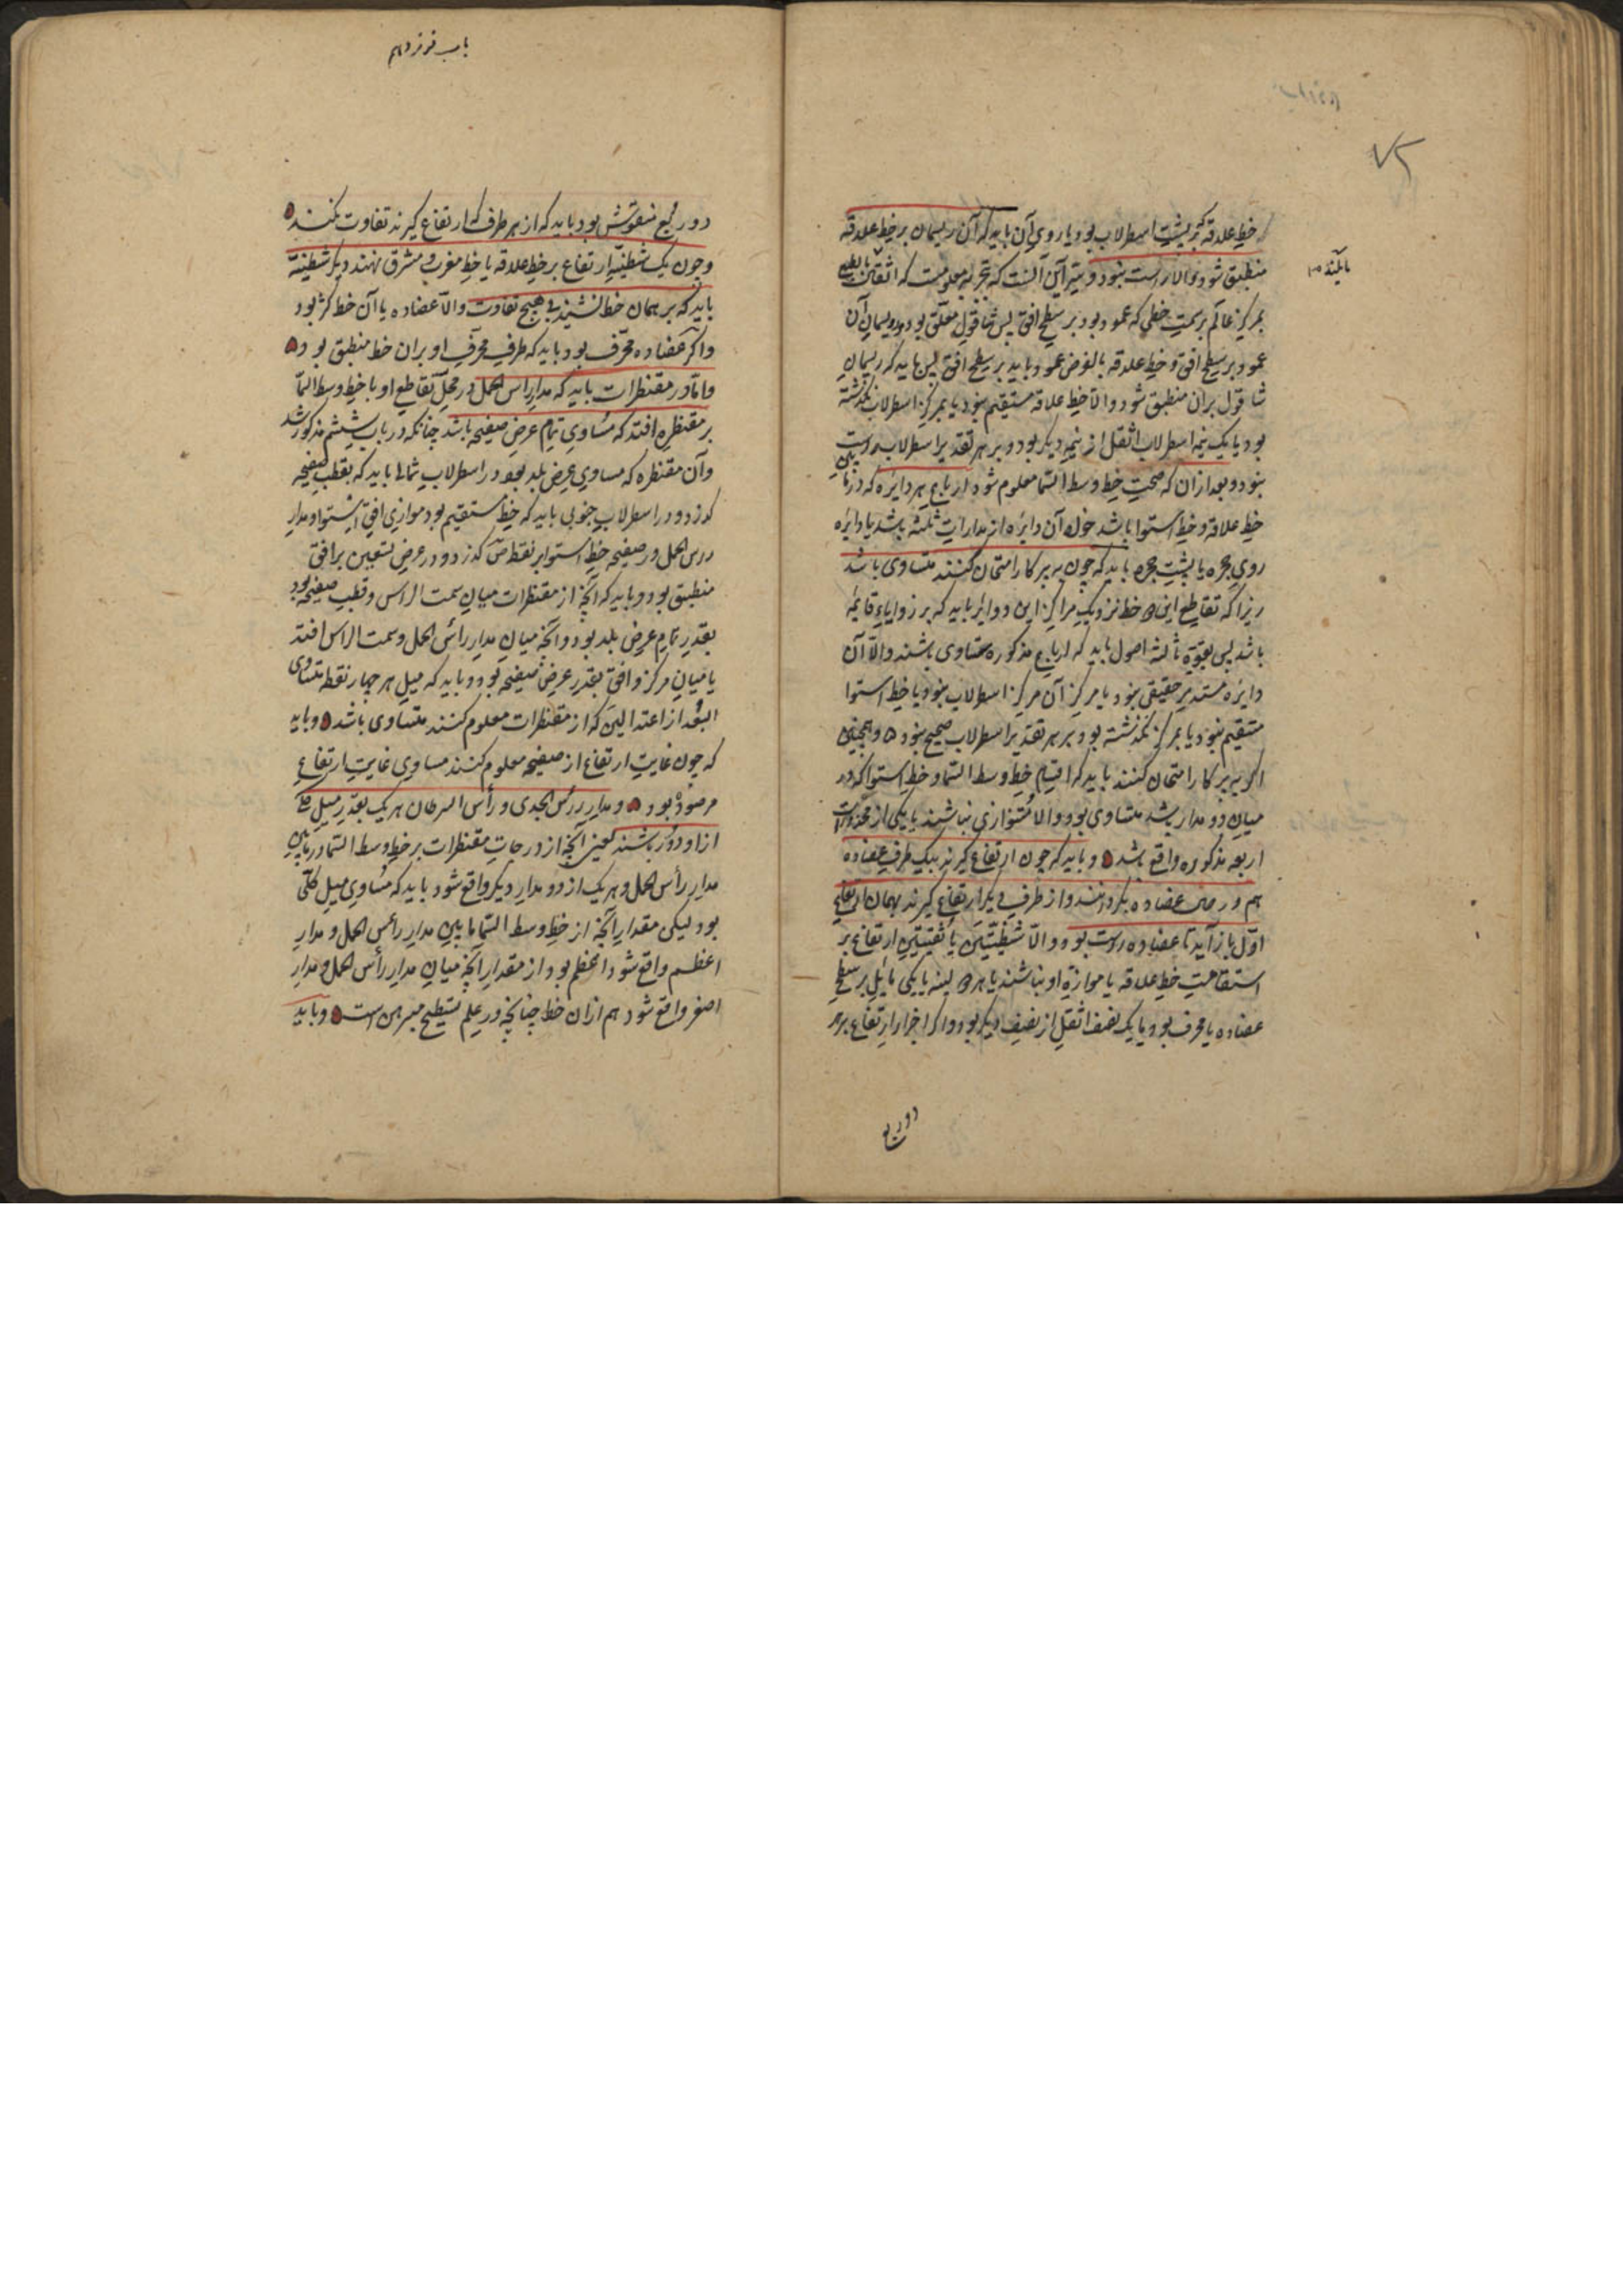 ۷۵
خط علاقه که بر پشت اسطرلاب بود یا روی آن باید که آن ریسمان بر خط علاقه
منطبق شود و الا راست نبود و سرّ این آنست که بتجربه معلومست که اثقال بالطبع
مایلند
بمرکز عالم بر سمت خطی که عمود بود بر سطح افق پس شاقول معلق بود و ریسمان آن
عمود بر سطح افق و خط علاقه بالفرض عمود باید بر سطح افق پس باید که ریسمان
شاقول بران منطبق شود و الا خط علاقه مستقیم نبود یا بمرکز اسطرلاب نگذشته
بود یا یک نیمه اسطرلاب اثقل از نیمه دیگر بود و بر هر تقدیر اسطرلاب راست
نبود و بعد از ان که صحت خط وسط السما معلوم شود ارباع هر دایره که در میان
خط علاقه و خط استوا باشد خواه آن دایره از مدارات ثلثه باشد یا دایره
روی حجره یا پشت حجره باید که چون به پرکار امتحان کنند متساوی باشد
زیرا که تقاطع این دو خط نزدیک مراکز این دوایر باید که بر زوایای قایمه
باشد پس بقوة ثالثه اصول باید که ارباع مذکوره متساوی باشند و الا آن
دایره مستدیر حقیقی نبود یا مرکز آن مرکز اسطرلاب نبود یا خط استوا
مستقیم نبود یا بمرکز نگذشته بود و بر هر تقدیر اسطرلاب صحیح نبود و همچنین
اگر به پرکار امتحان کنند باید که اقسام خط وسط السما و خط استوا که در
میان دو مدار باشد متساوی بود و الا متوازی نباشند یا یکی از محذورات
اربعه مذکوره واقع باشد و باید که چون ارتفاع گیرند بیک طرف عضاده
هم در حال عضاده بگردانند و از طرف دیگر ارتفاع گیرند بهمان ارتفاع
اول باز آید تا عضاده راست بود و الا شظیتین یا ثقبتین ارتفاع بر
استقامت خط علاقه یا موازی او نباشند یا هر دو لبنه یا یکی مایل بر سطح
عضاده یا محرف بود یا یک نصف اثقل از نصف دیگر بود و اگر اجزاء ارتفاع بر هر
دو ربع
باب نوزدهم
دو ربع منقوش بود باید که از هر طرف که ارتفاع گیرند تفاوت نکند
و چون یک شظیه ارتفاع بر خط علاقه یا خط مغرب و مشرق نهند دیگر شظیه
باید که بر همان خط نشیند بی هیچ تفاوت و الا عضاده یا آن خط کژ بود
و اگر عضاده محرّف بود باید که طرف محرّف او بران خط منطبق بود
و اما در مقنطرات باید که مدار راس الحمل در محل تقاطع او با خط وسط السما
بر مقنطره افتد که مساوی تمام عرض صفیحه باشد چنانکه در باب ششم مذکور شد
و آن مقنطره که مساوی عرض بلد بود در اسطرلاب شمالی باید که بقطب صفیحه
گذرد و در اسطرلاب جنوبی باید که خط مستقیم بود موازی افق استوا و مدار
راس الحمل و در صفیحه خط استوا بر نقطه ص گذرد و در عرض تسعین بر افق
منطبق بود و باید که آنچه از مقنطرات میان سمت الراس و قطب صفیحه بود
بقدر تمام عرض بلد بود و آنچه میان مدار رأس الحمل و سمت الراس افتد
یا میان مرکز و افق بقدر عرض صفیحه بود و باید که میل هر چهار نقطه متساوی
البعد از اعتدالین که از مقنطرات معلوم کنند متساوی باشد و باید
که چون غایت ارتفاع از صفیحه معلوم کنند مساوی غایت ارتفاع
مرصود بود و مدار رأس الجدی و رأس السرطان هر یک بقدر میل کلی
از او دور باشند یعنی آنچه از درجات مقنطرات بر خط وسط السما در مابین
مدار رأس الحمل و هر یک از دو مدار دیگر واقع شود باید که مساوی میل کلی
بود لیکن مقدار آنچه از خط وسط السما ما بین مدار رأس الحمل و مدار
اعظم واقع شود اعظم بود از مقدار آنچه میان مدار رأس الحمل و مدار
اصغر واقع شود هم ازان خط چنانچه در علم تسطیح مبرهن است و باید